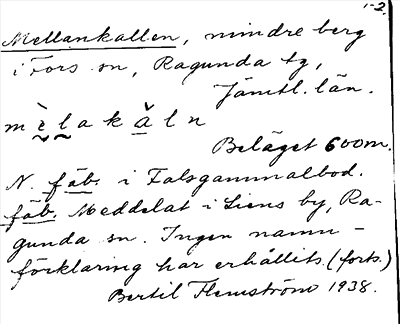 1-2.
Mellankallen, mindre berg
i Fors sn, Ragunda tg,
Jämtl. län.
mèlakăln
Beläget 600m.
N. fäb. i Falsgammalbod.
fäb. Meddelat i Liens by, Ra-
gunda sn. Ingen namn-
förklaring har erhållits. (forts.)
Bertil Flemström 1938.